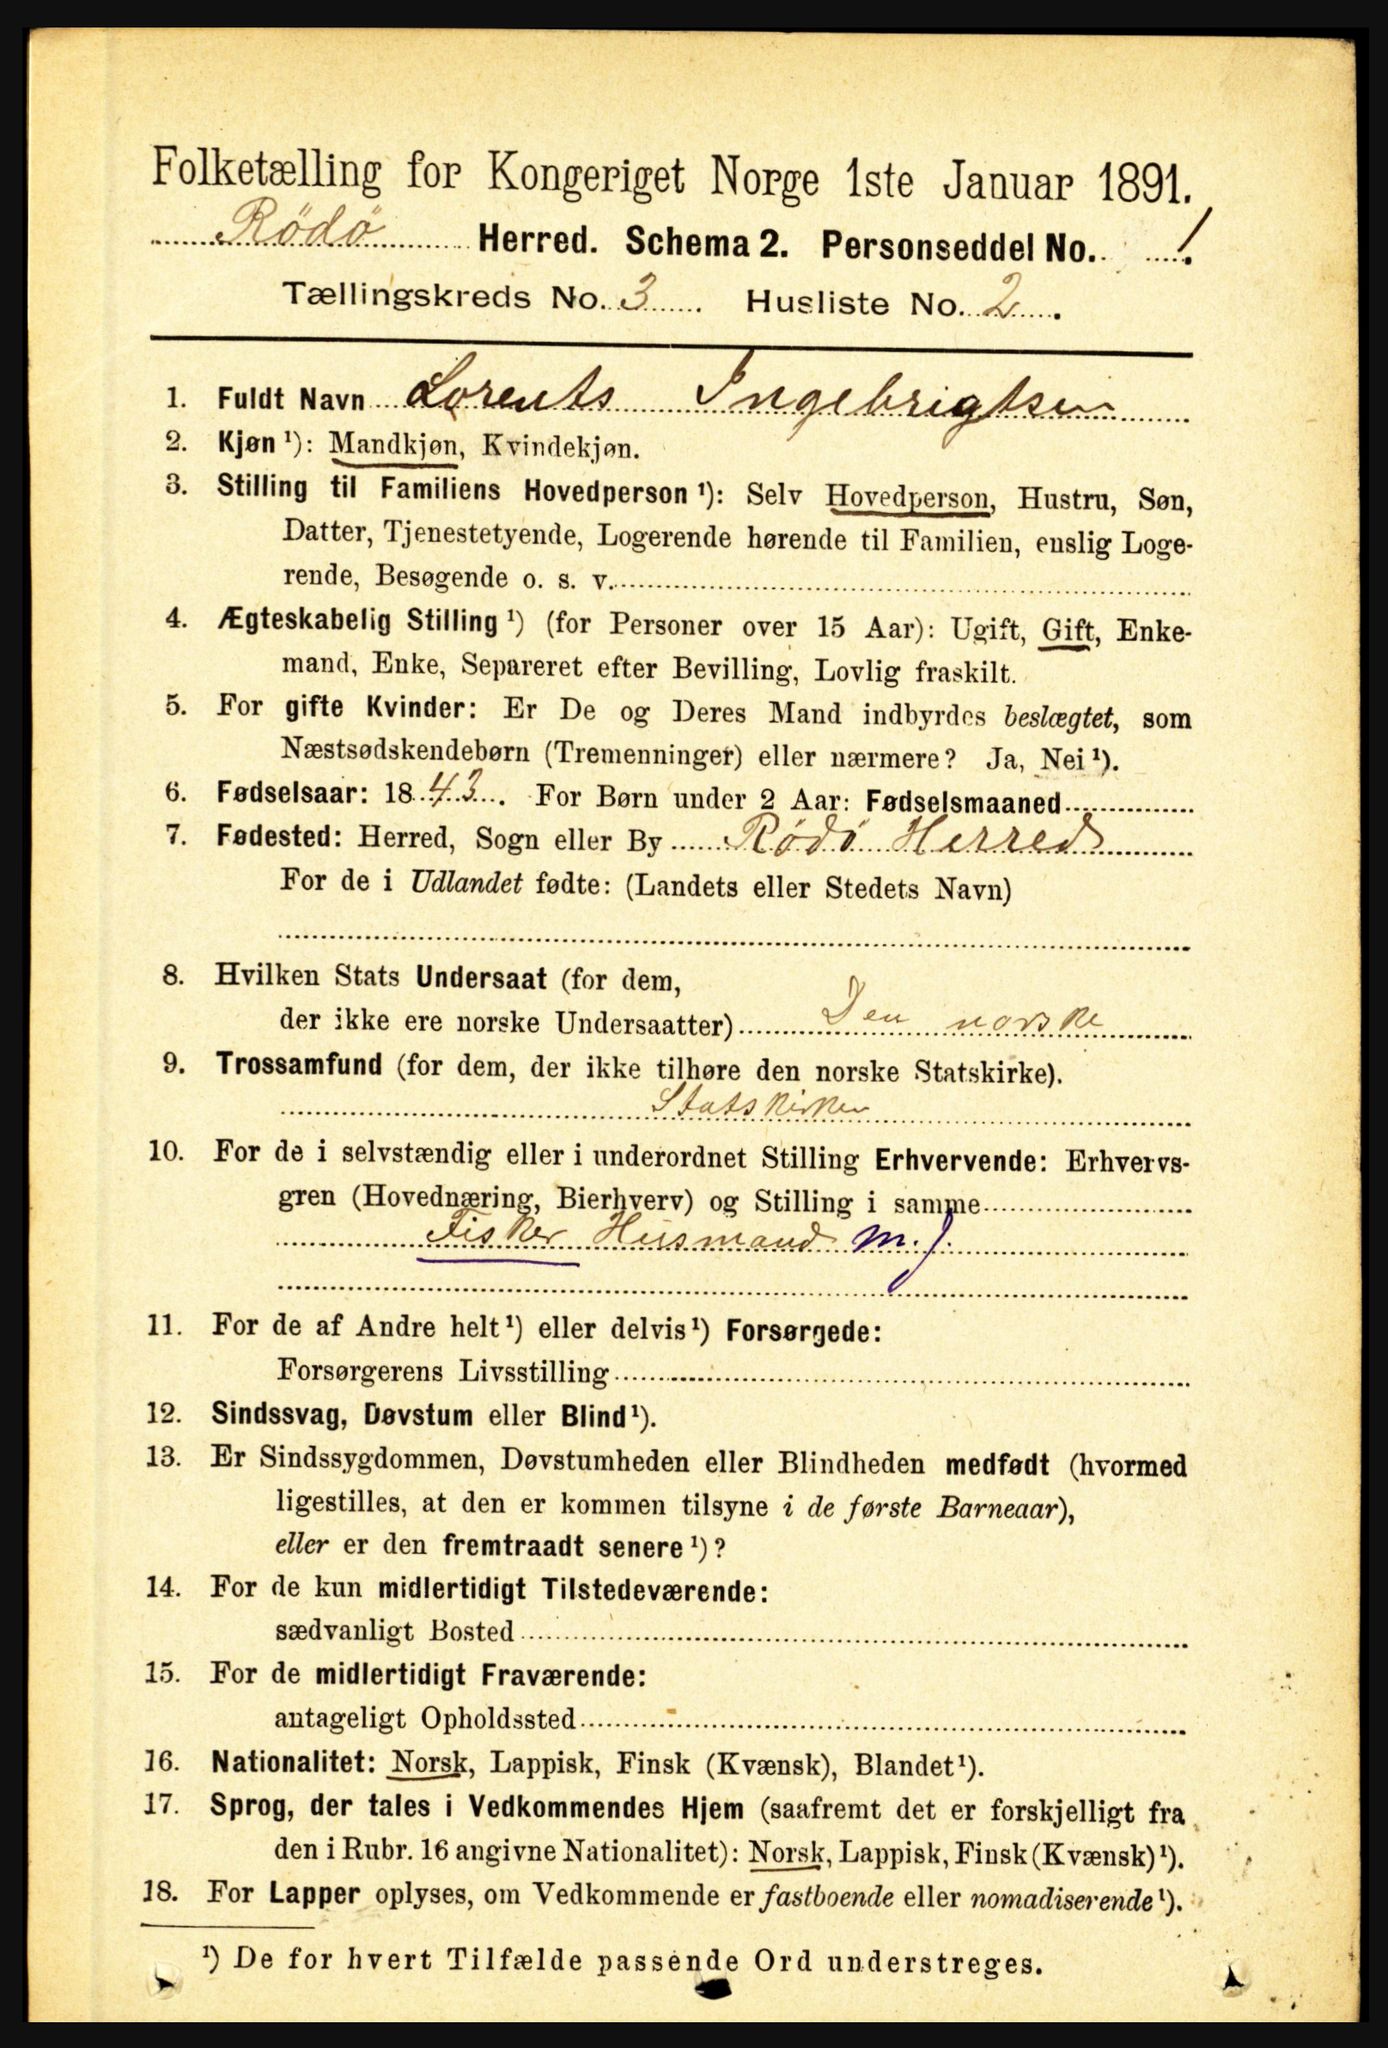 Folketælling for Kongeriget Norge 1ste Januar 1891.
Rödö Herred. Schema 2. Personseddel No. 1.
Tællingskreds No. 3. Husliste No. 2.
1. Fuldt Navn Lorents Ingebrigtsen
2. Kjøn ¹): Mandkjøn, Kvindekjøn.
3. Stilling til Familiens Hovedperson ¹): Selv Hovedperson, Hustru, Søn,
Datter, Tjenestetyende, Logerende hørende til Familien, enslig Loge-
rende, Besøgende o. s. v.
4. Ægteskabelig Stilling ¹) (for Personer over 15 Aar): Ugift, Gift, Enke-
mand, Enke, Separeret efter Bevilling, Lovlig fraskilt.
5. For gifte Kvinder: Er De og Deres Mand indbyrdes beslægtet, som
Næstsødskendebørn (Tremenninger) eller nærmere? Ja, Nei ¹).
6. Fødselsaar: 1843. For Børn under 2 Aar: Fødselsmaaned
7. Fødested: Herred, Sogn eller By Rödö Herred
For de i Udlandet fødte: (Landets eller Stedets Navn)
8. Hvilken Stats Undersaat (for dem,
der ikke ere norske Undersaatter) Den norske
9. Trossamfund (for dem, der ikke tilhøre den norske Statskirke).
Statskirken
10. For de i selvstændig eller i underordnet Stilling Erhvervende: Erhvervs-
gren (Hovednæring, Bierhverv) og Stilling i samme
Fisker Husmand m. J.
11. For de af Andre helt ¹) eller delvis ¹) Forsørgede:
Forsørgerens Livsstilling
12. Sindssvag, Døvstum eller Blind ¹).
13. Er Sindssygdommen, Døvstumheden eller Blindheden medfødt (hvormed
ligestilles, at den er kommen tilsyne i de første Barneaar),
eller er den fremtraadt senere ¹)?
14. For de kun midlertidigt Tilstedeværende:
sædvanligt Bosted
15. For de midlertidigt Fraværende:
antageligt Opholdssted
16. Nationalitet: Norsk, Lappisk, Finsk (Kvænsk), Blandet ¹).
17. Sprog, der tales i Vedkommendes Hjem (saafremt det er forskjelligt fra
den i Rubr. 16 angivne Nationalitet): Norsk, Lappisk, Finsk (Kvænsk) ¹).
18. For Lapper oplyses, om Vedkommende er fastboende eller nomadiserende ¹).
¹) De for hvert Tilfælde passende Ord understreges.